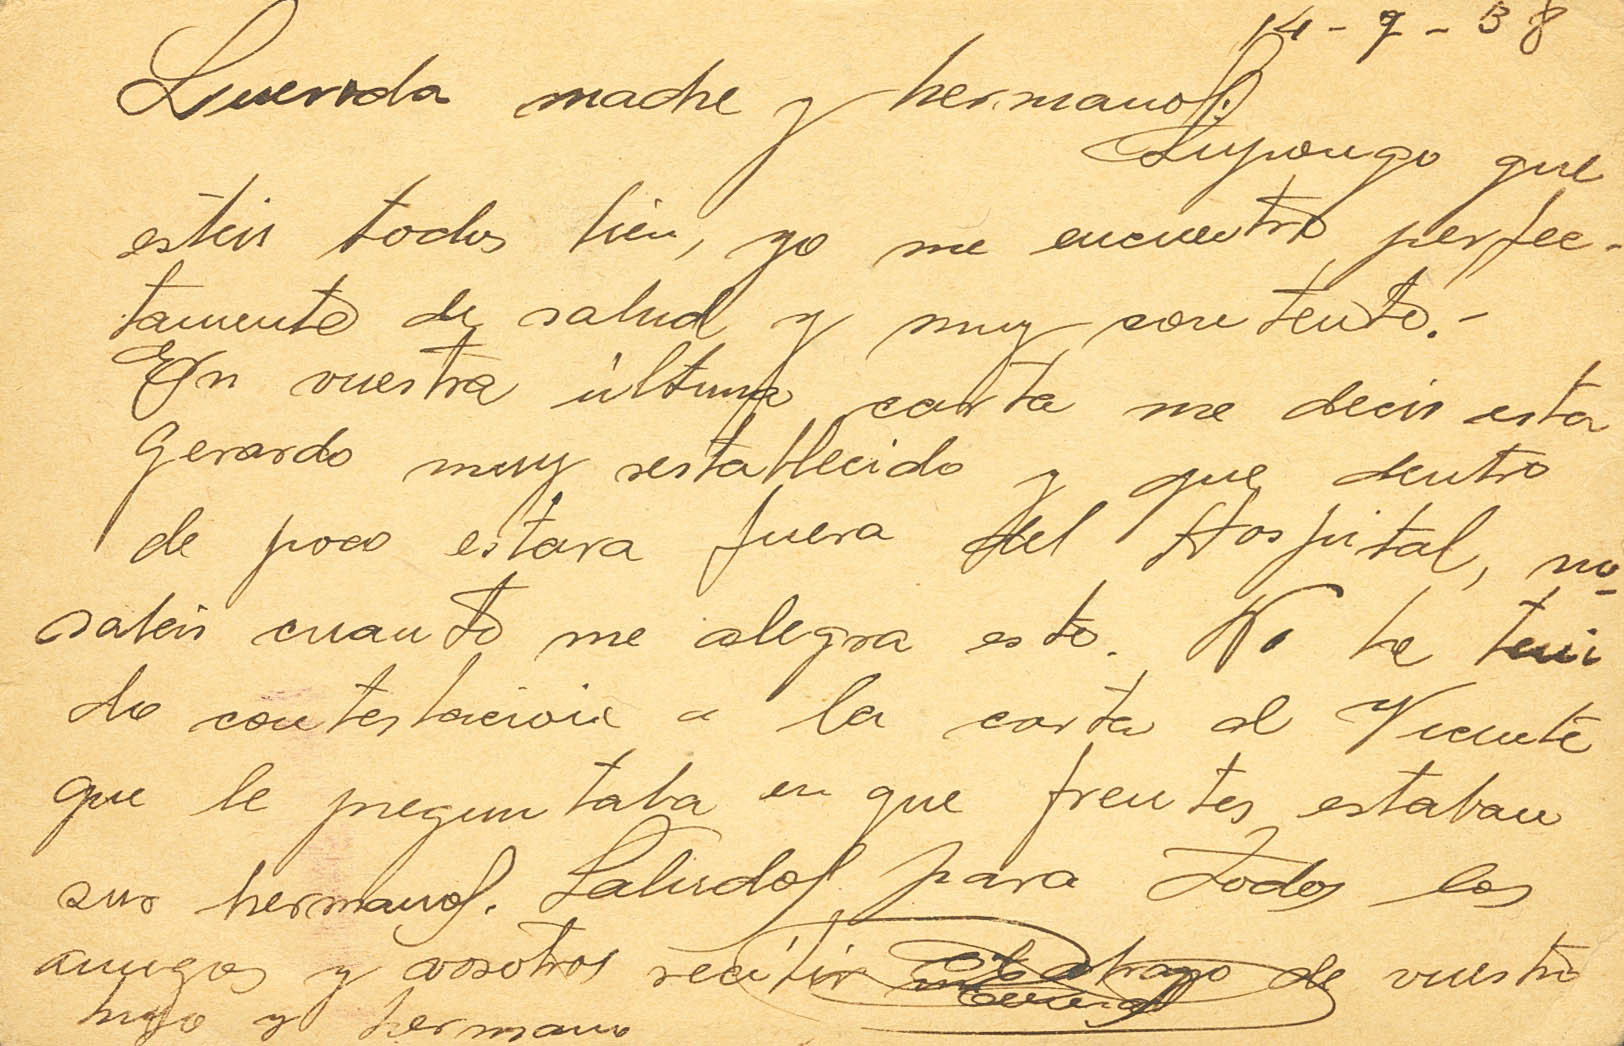 14-9-38
Querida madre y hermanos:
Supongo que
esteis todos bien, yo me encuentro perfec-
tamente de salud y muy contento.-
En vuestra última carta me decis esta
Gerardo muy restablecido y que dentro
de poco estara fuera del Hospital, no-
sabeis cuanto me alegra esto. No he teni
do contestación a la carta al Vicente
que le preguntaba en que frentes estaban
sus hermanos. Saludos para todos los
amigos y vosotros recibir abrazo de vuestro
hijo y hermano